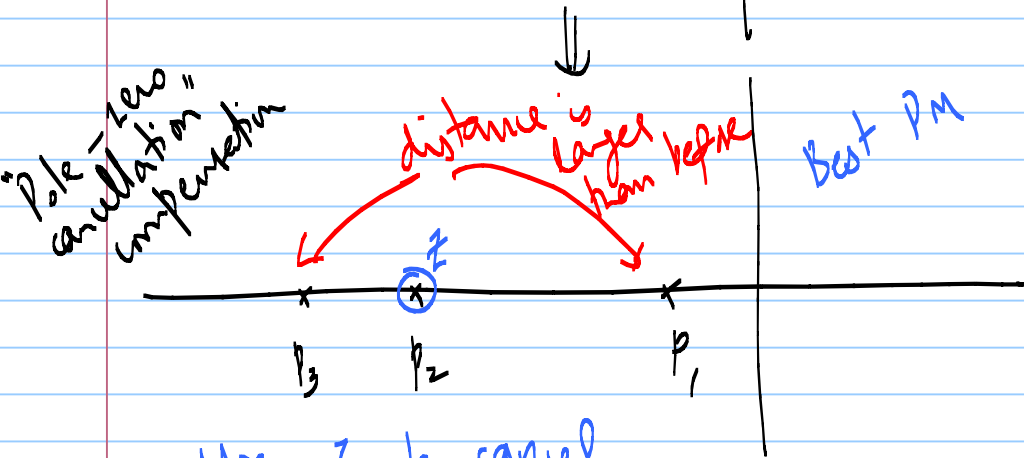 "Pole-Zero"
cancellation
compensation
distance is
larger
than before
Best PM
Z
P3 P2 P1
Use Z to cancel